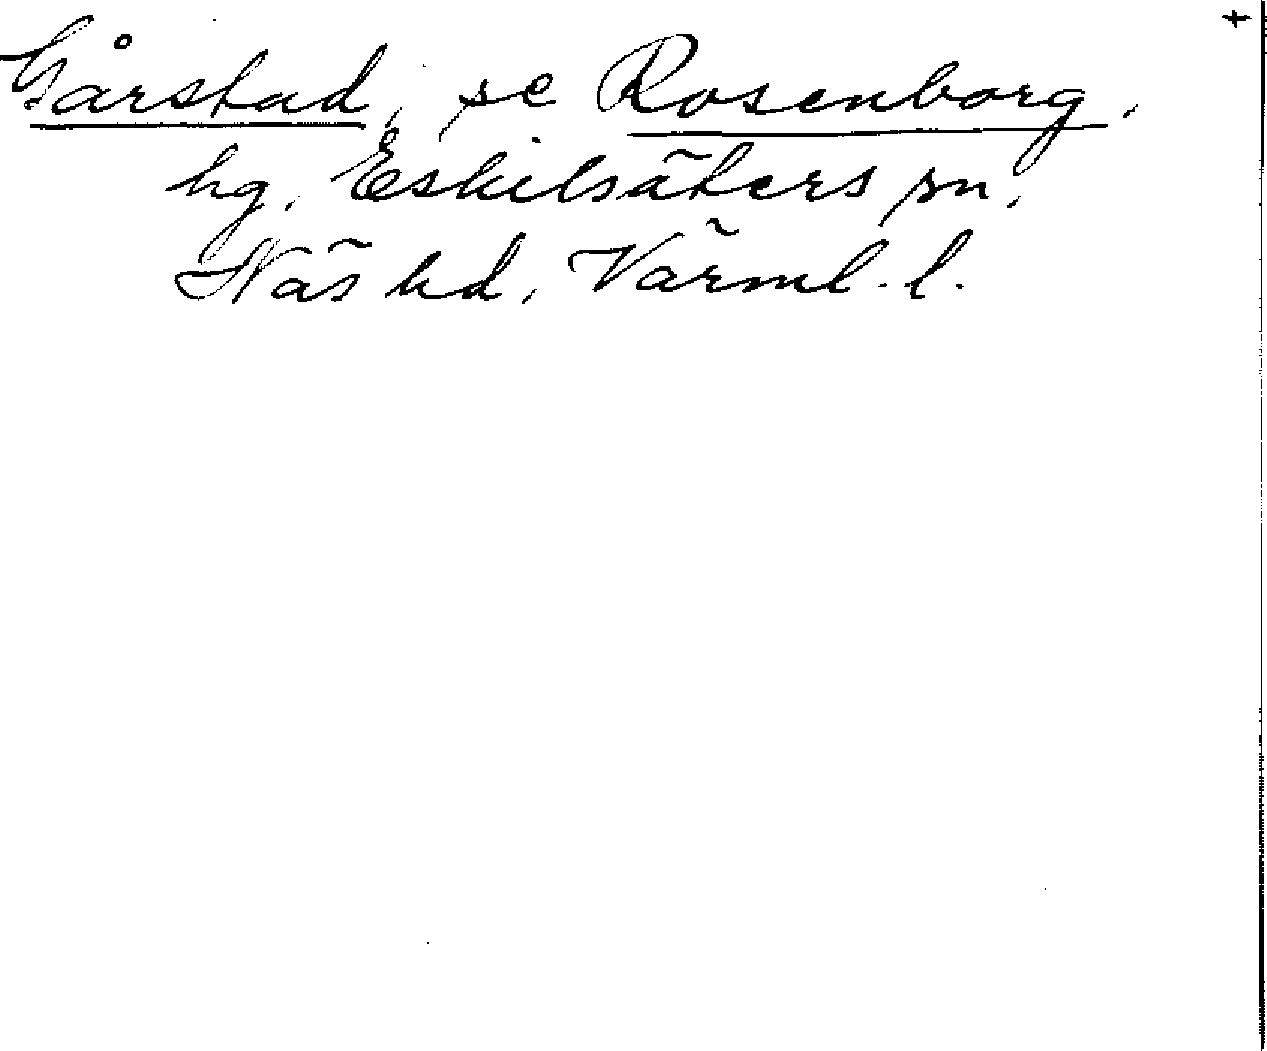 Gårstad, se Rosenborg,
hg, Eskilsäters sn,
Näs hd, Värml. l.